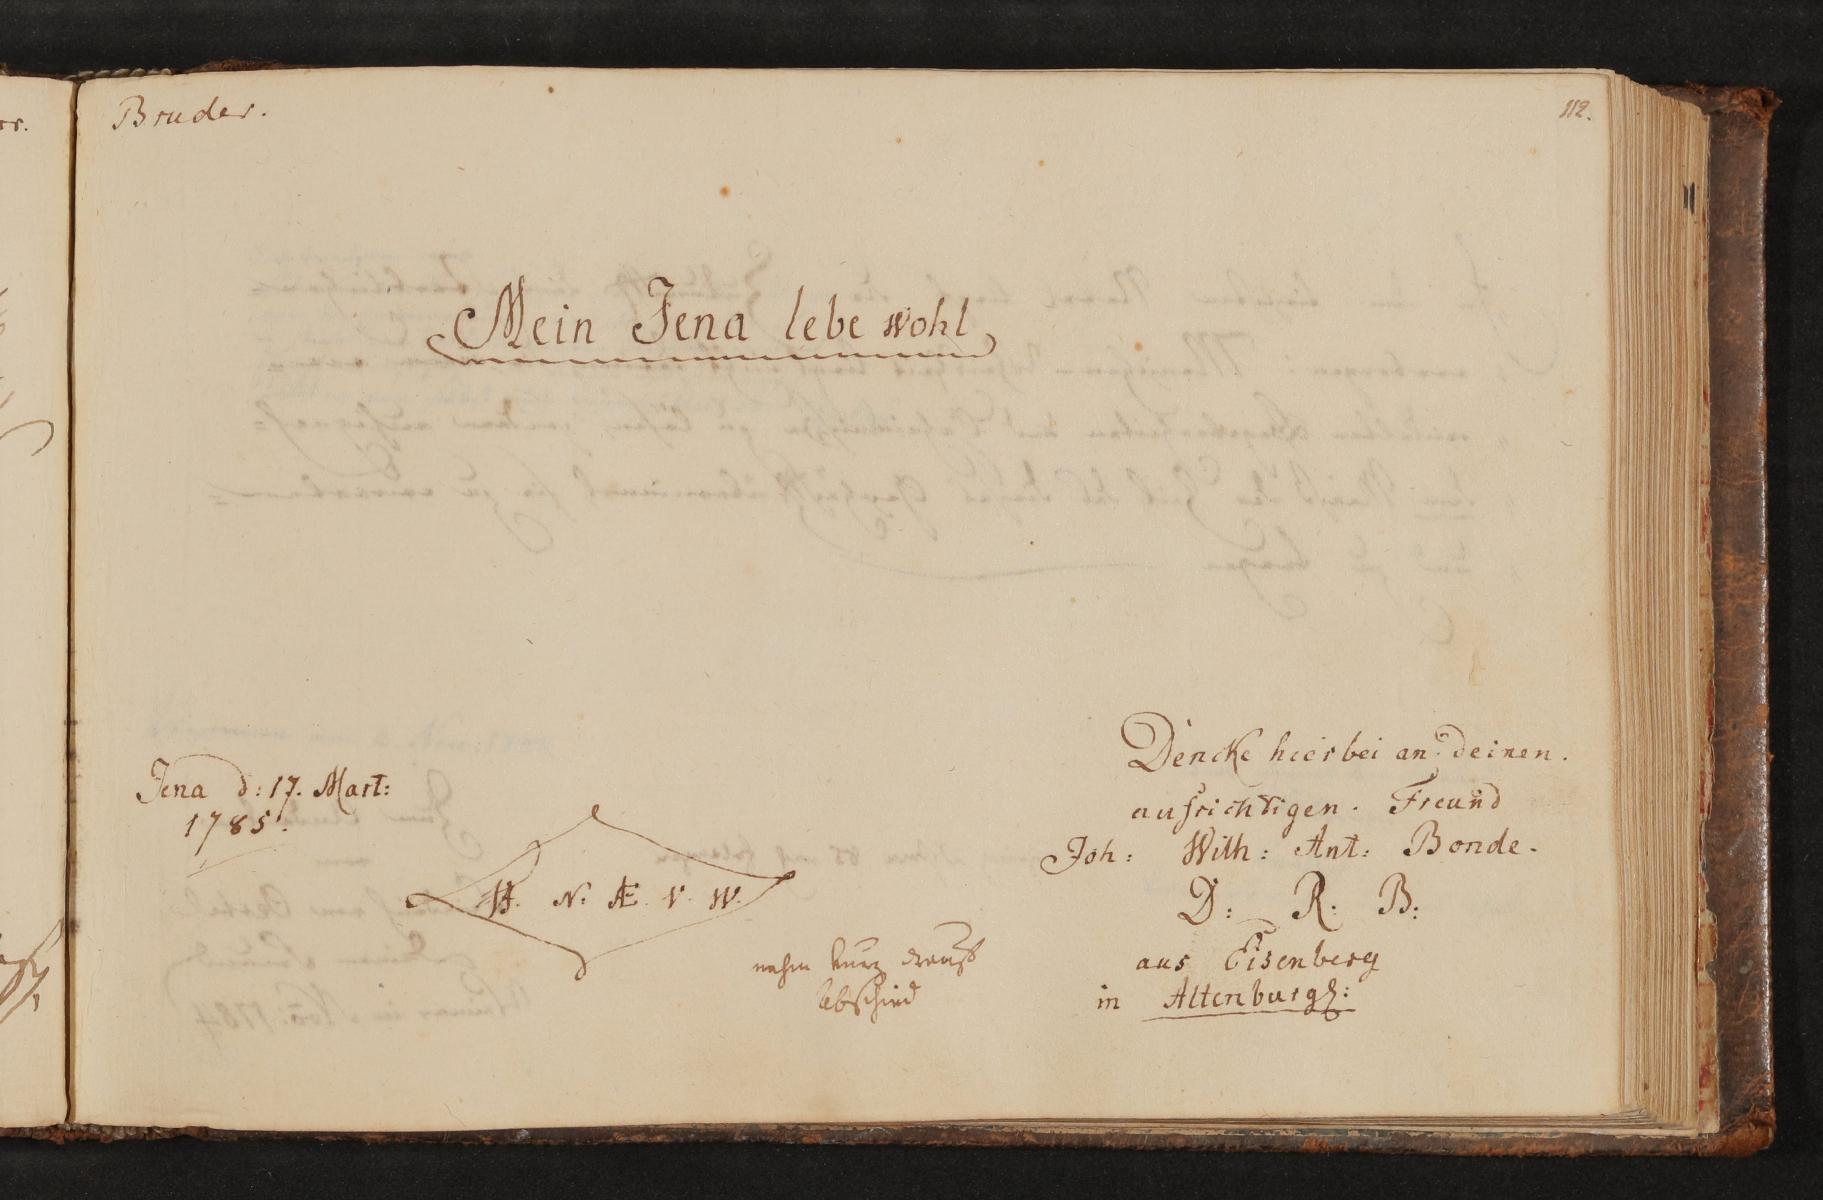 Bruder.
112.
Mein Jena lebe wohl
Jena d: 17. Mart:
1785.
H. N. Æ. V. W.
nahm kurz drauf
Abschied
Dencke hierbei an deinen.
aufrichtigen. Freund
Joh: Wilh: Ant: Bonde.
D: R: B:
aus Eisenberg
in Altenburg: